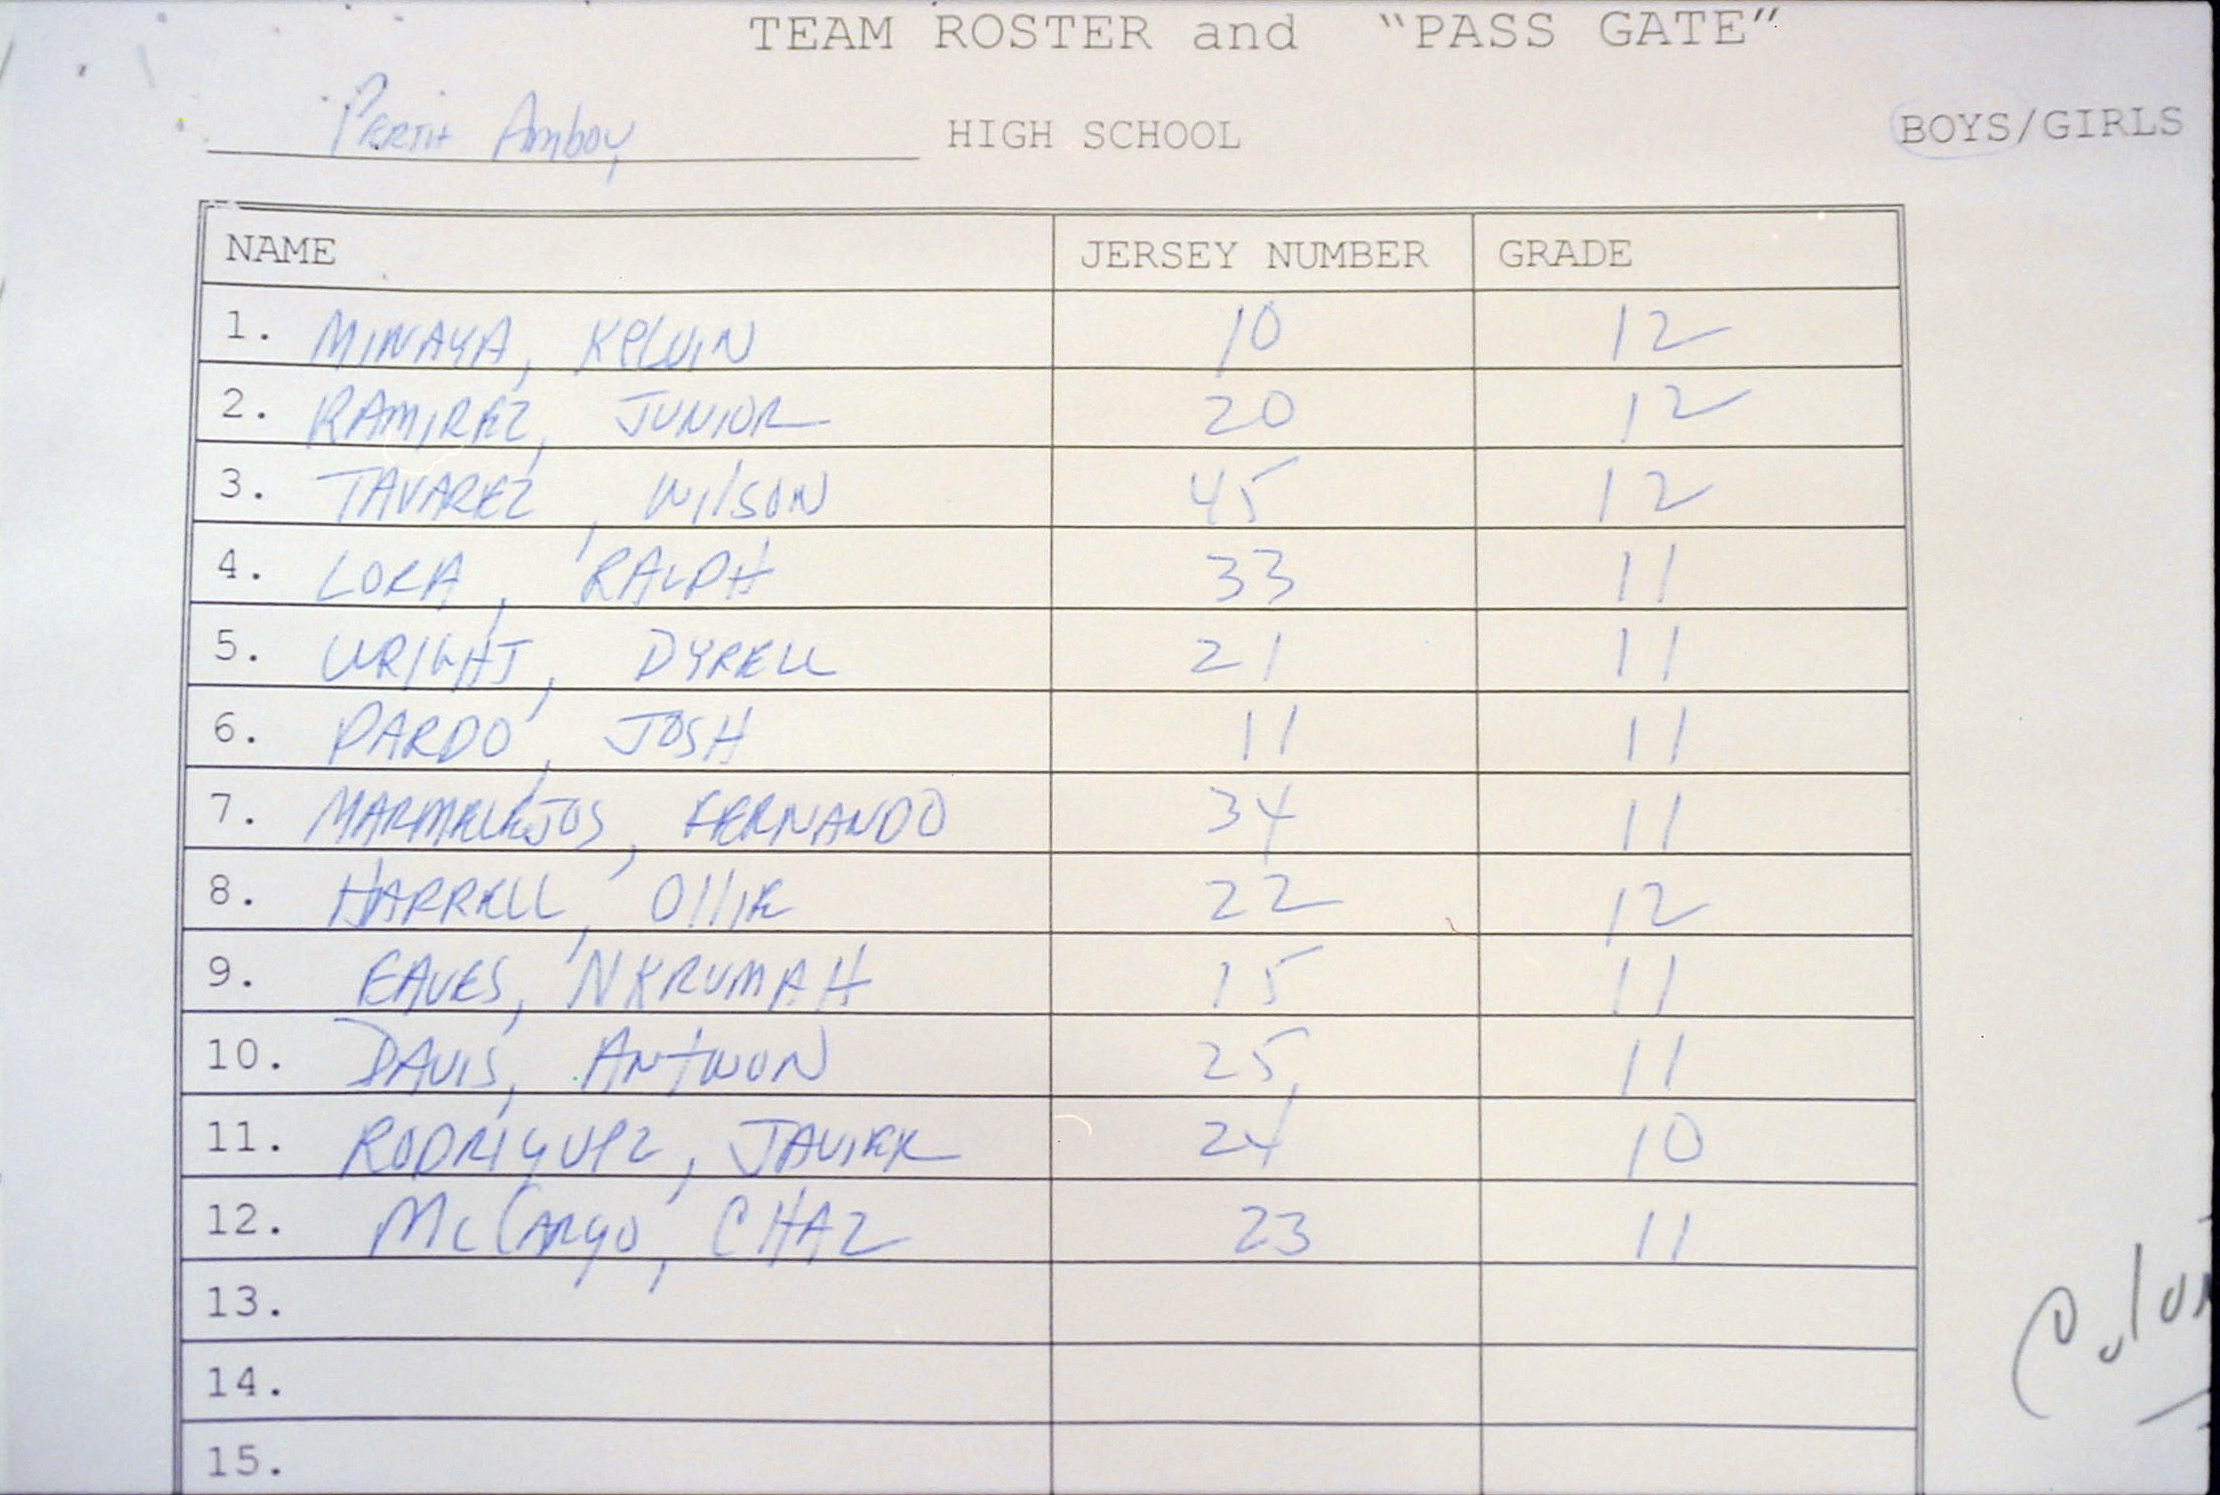 TEAM ROSTER and "PASS GATE"
Perth Amboy HIGH SCHOOL BOYS/GIRLS
NAME JERSEY NUMBER GRADE
1. MINAYA, KELVIN 10 12
2. RAMIREZ, JUNIOR 20 12
3. TAVAREZ, WILSON 45 12
4. LORA, RALPH 33 11
5. WRIGHT, DYRELL 21 11
6. PARDO, JOSH 11 11
7. MARMELEJOS, FERNANDO 34 11
8. HARRELL, OLLIE 22 12
9. EAVES, NKRUMAH 15 11
10. DAVIS, ANTWON 25 11
11. RODRIGUEZ, JAVIER 24 10
12. McCargo, CHAZ 23 11
13.
14.
15.